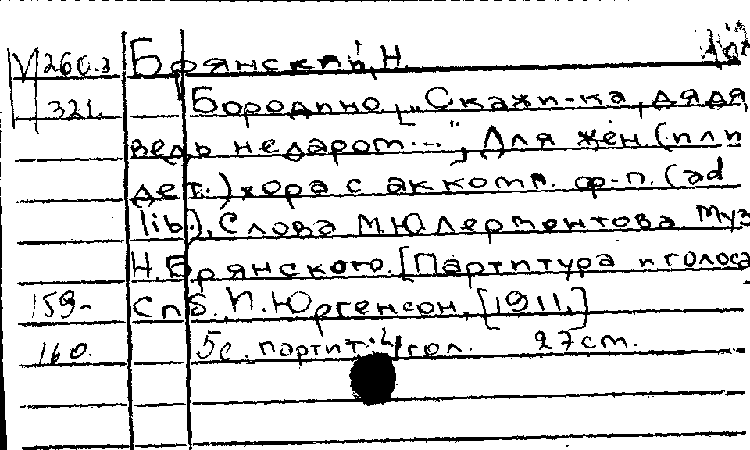 V 260.2 Брянский, Н.
321. Бородино, [„Скажи-ка, дядя
ведь недаром..."], Для жен (или
дет.) хора с аккомп. ф-п. (ad
lib.), Слова М.Ю.Лермонтова Муз
Н.Брянского. [Партитура и голоса
159- Спб. П. Юргенсон, [1911.]
160. 5с. партит. 4 гол. 27cm.